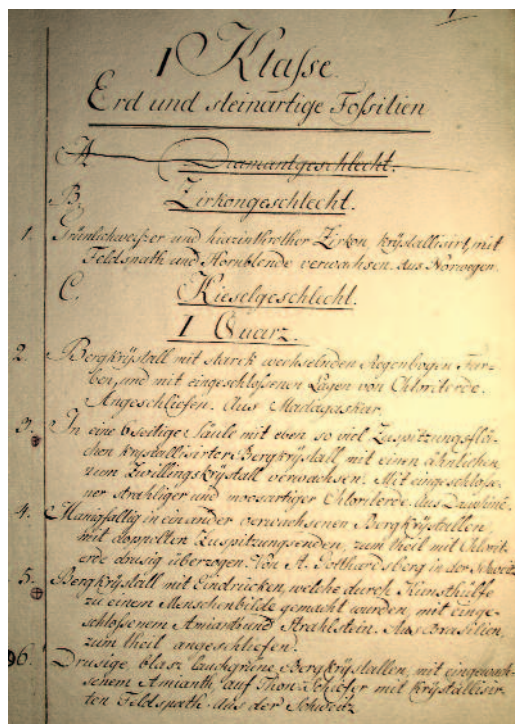 I Klaſse.
Erd und steinartige Foſsilien
A. Diamantgeschlecht.
B. Zirkongeschlecht.
1. Grünlichweiſzer und hiazinthrother Zirkon, krÿstallisirt, mit
Feldspath und Hornblende verwachsen. Aus Norwegen.
C. Kieselgeschlecht.
I Quarz.
2. Bergkrÿstall mit starck wechselnden Regenbogen Far-
ben, und mit eingeschloſsenen Lagen von Chloriterde.
Angeschliefen. Aus Madagaskar.
3. In eine 6seitige Säule mit eben so viel Zuspitzungsflä-
chen krÿstallisirter Bergkrÿstall mit einen ähnlichen
zum Zwillingskrÿstall verwachsen. Mit eingeschloſse-
ner strahliger und moosartiger Chloriterde. Aus Dauphiné.
4. Manigfaltig in einander verwachsenen Bergkrÿstallen
mit doppelten Zuspitzungsenden, zum theil mit Chlorit-
erde drusig überzogen. Von St. Gotthardsberg in der Schweitz
5. Bergkrÿstall mit Eindrücken, welche durch Kunsthülfe
zu einem Menschenbilde gemacht wurden, mit einge-
schloſsenem Amianth und Strahlstein. Aus Brasilien,
zum theil angeschliefen.
6. Drusige, blasz lauchgrüne Bergkrÿstallen, mit eingewach-
senem Amianth, auf Thon Schiefer mit krÿstallisir-
ten Feldspath. Aus der Schweiz